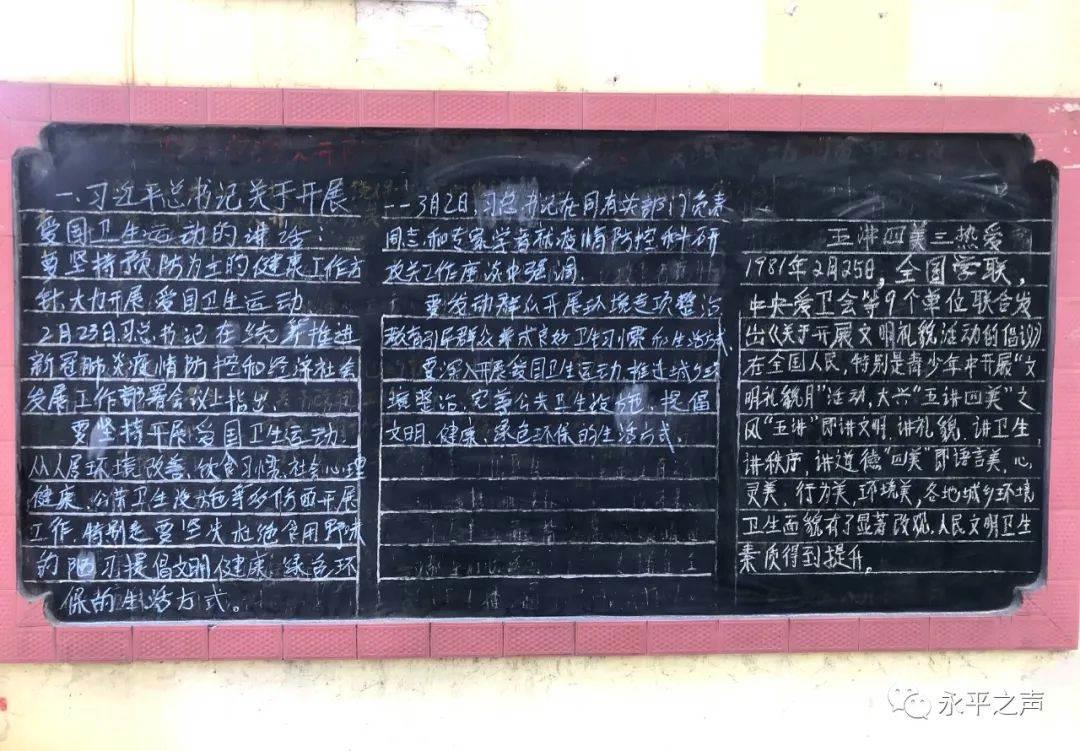 一、习近平总书记关于开展
爱国卫生运动的讲话：
要坚持预防为主的健康工作方
针,大力开展爱国卫生运动
2月23日,习总书记在统筹推进
新冠肺炎疫情防控和经济社会
发展工作部署会议上指出,
要坚持开展爱国卫生运动
从人居环境改善,饮食习惯,社会心理
健康、公共卫生设施等多方面开展
工作,特别是要坚决杜绝食用野味
的陋习,提倡文明健康、绿色环
保的生活方式。
--3月2日,习总书记在同有关部门负责
同志和专家学者就疫情防控科研
攻关工作座谈中强调
要发动群众开展环境专项整治
教育引导群众养成良好卫生习惯和生活方式
要深入开展爱国卫生运动,推进城乡环
境整治,完善公共卫生设施,提倡
文明、健康、绿色环保的生活方式。
五讲四美三热爱
1981年2月25日,全国学联,
中央爱卫会等9个单位联合发
出《关于开展文明礼貌活动的倡议》
在全国人民,特别是青少年中开展“文
明礼貌月”活动,大兴“五讲四美”之
风“五讲”即讲文明,讲礼貌,讲卫生,
讲秩序,讲道德“四美”即语言美,心
灵美,行为美,环境美,各地城乡环境
卫生面貌有了显著改观,人民文明卫生
素质得到提升。
永平之声